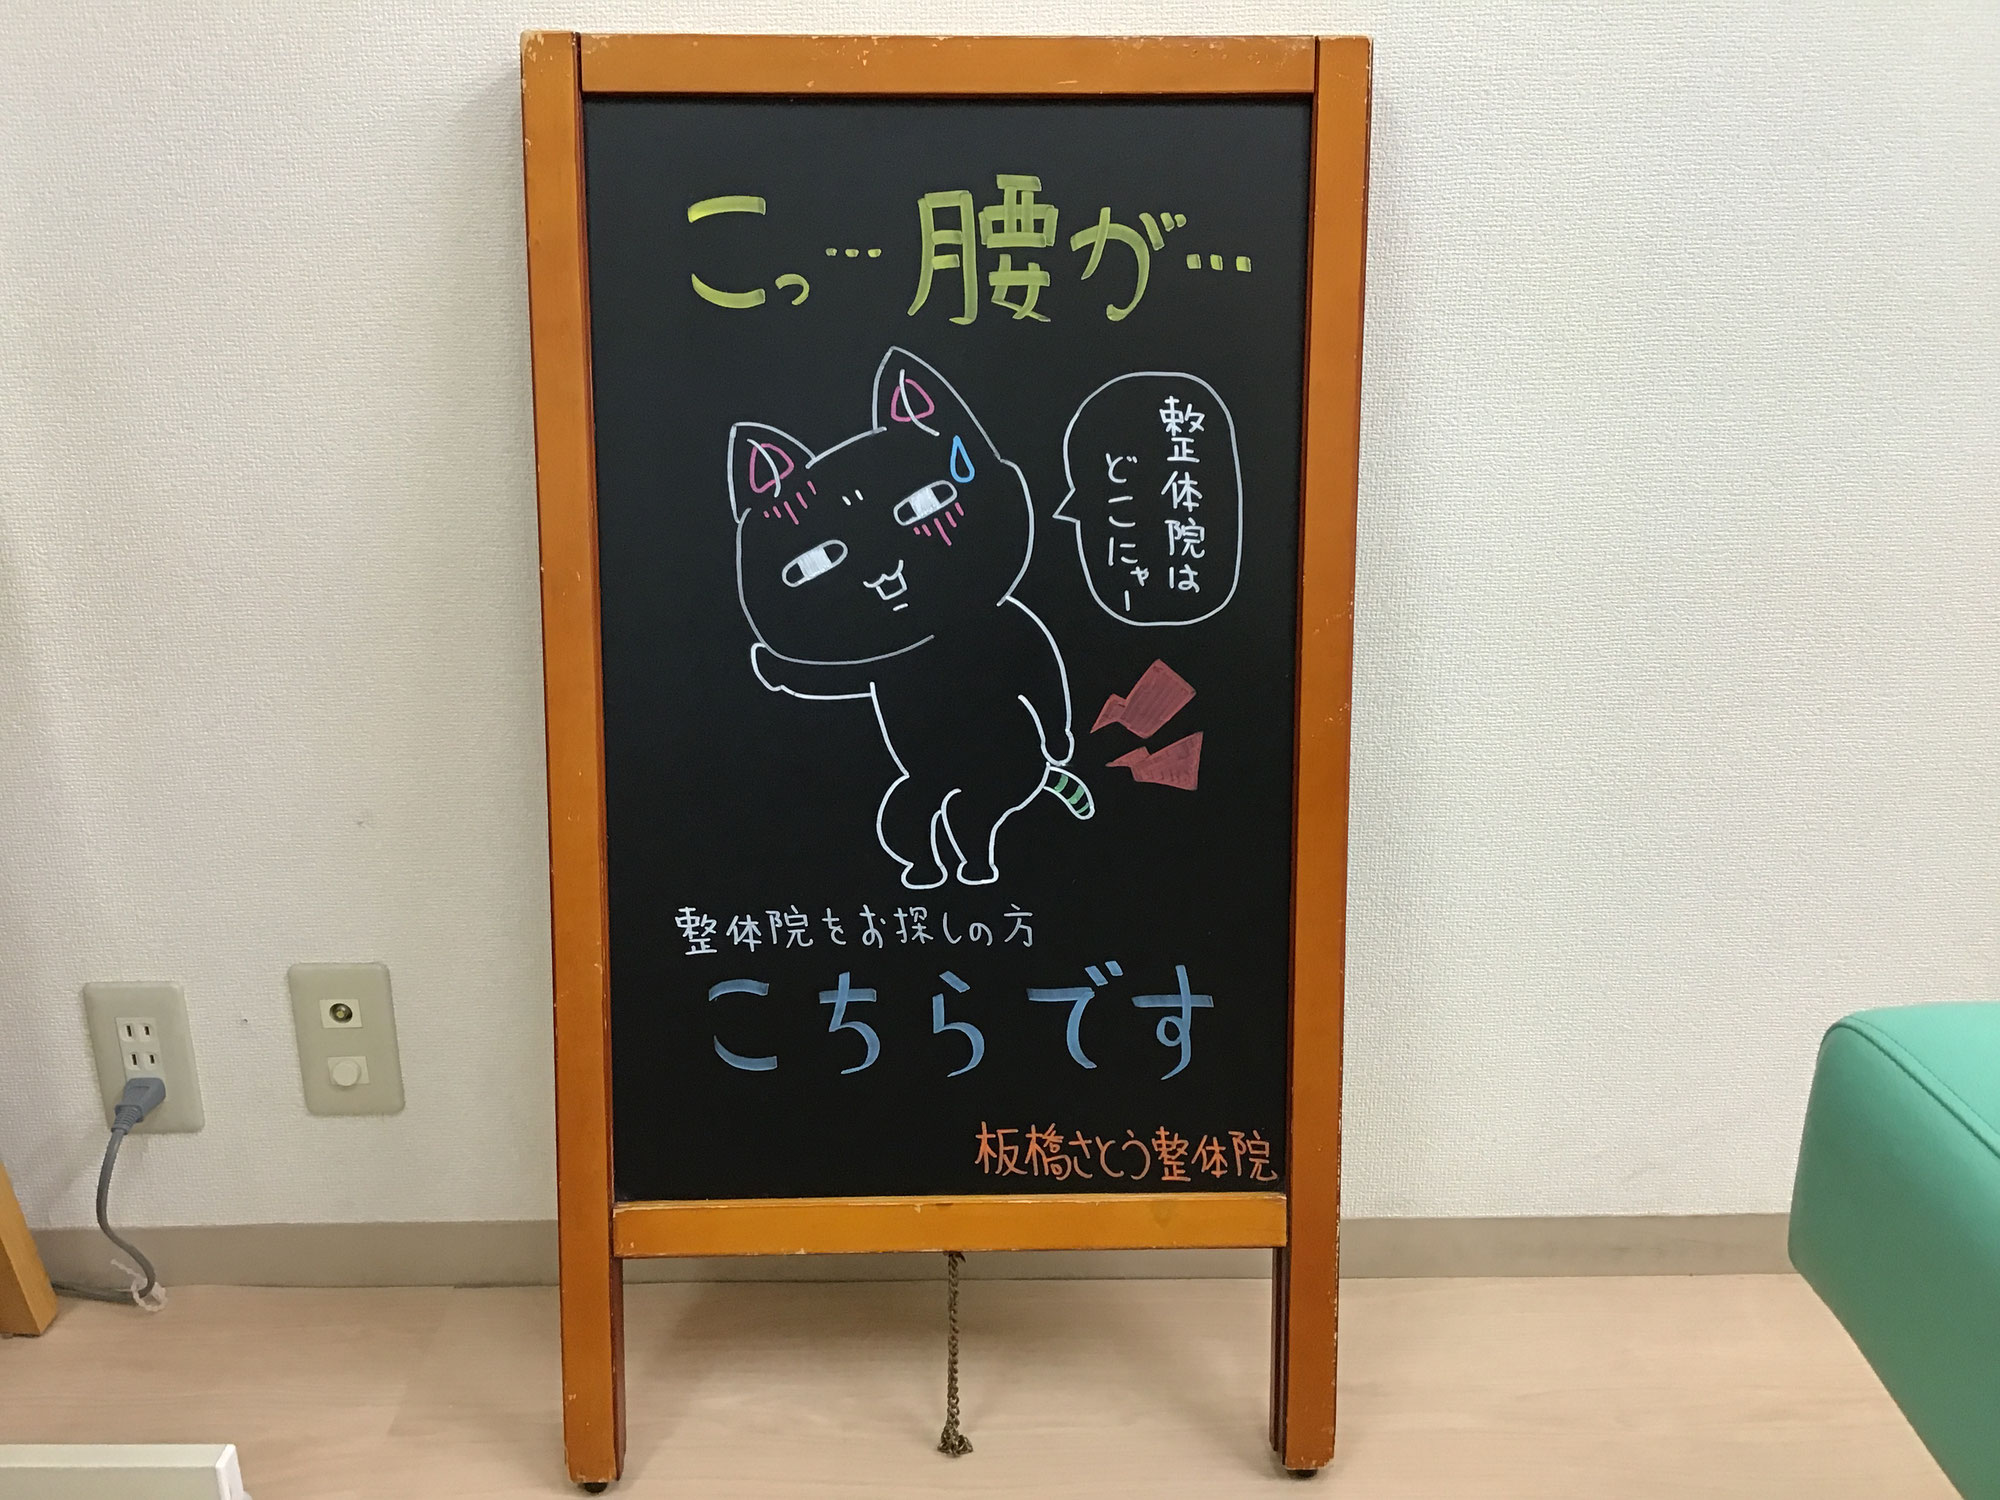 こっ…腰が…
整体院は
どこにゃー
整体院をお探しの方
こちらです
板橋さとう整体院